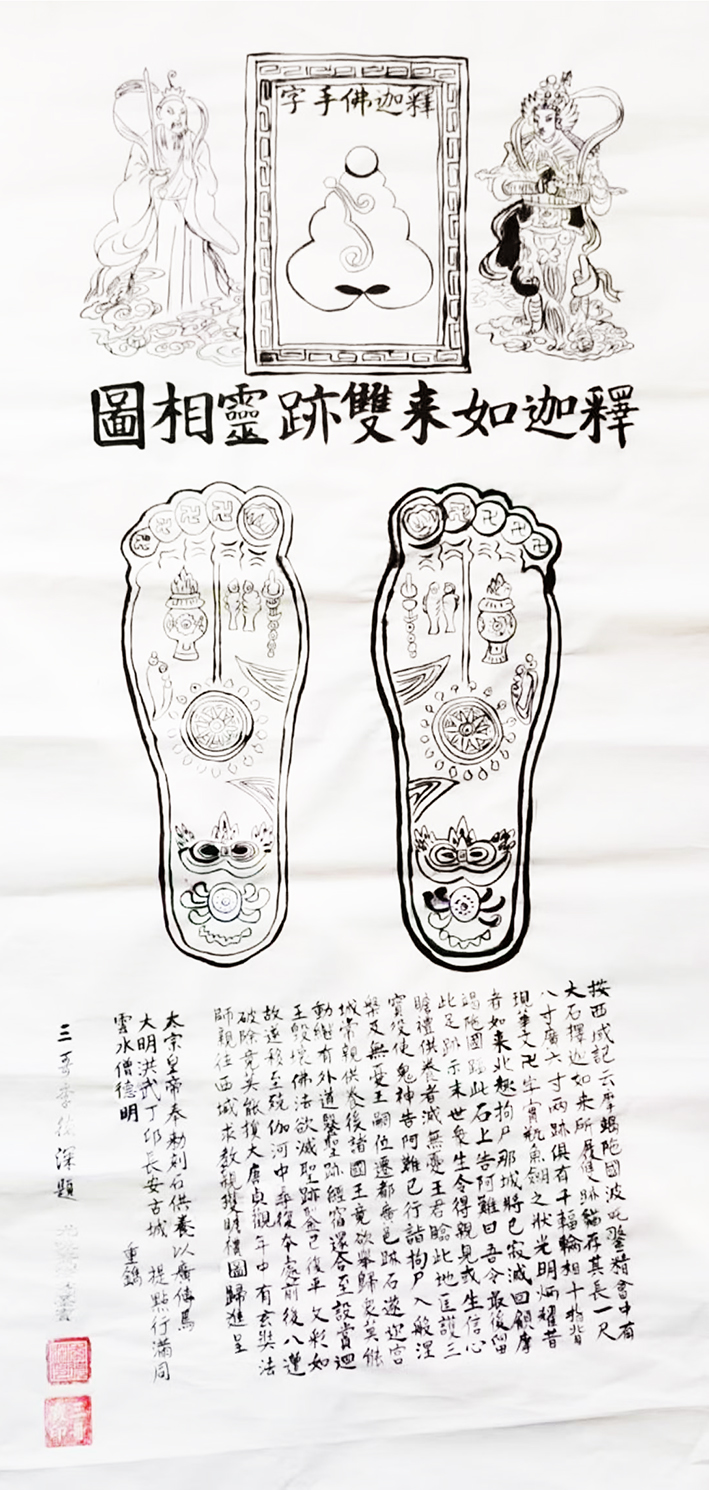 釋迦佛手字
釋迦如来雙跡靈相圖
按西域記云摩蝎陁國波吒釐精舍中有
大石釋迦如来所履雙跡猶存其長一尺
八寸廣六寸兩跡俱有千輻輪相十指皆
現華文卍字寳瓶魚劍之狀光明炳耀昔
者如来北趣拘尸那城將已寂滅回顧摩
竭陁國蹈此石上告阿難曰吾今最後留
此足跡示末世衆生令得親見或生信心
瞻禮供養者滅無憂王君臨此地匡護三
寳役使鬼神告阿難已行詣拘尸入般涅
槃及無憂王嗣位遷都邑跡石遂迎宫
城常親供養後諸國王竟欲舉歸衆莫能
動継有外道鑿聖跡經宿還合至設賞迦
王毀壞佛法欲滅聖跡鑿已復平文彩如
故遂移至殑伽河中尋復本處前後八
破除竟莫能損大唐貞觀年中有玄奘法
師親往西域求教親獲瞻禮圖歸進呈
太宗皇帝奉勅刻石供養以廣傳焉
大明洪武丁卯長安古城 提點行滿同
雲水僧德明 重鐫
三吾李深題